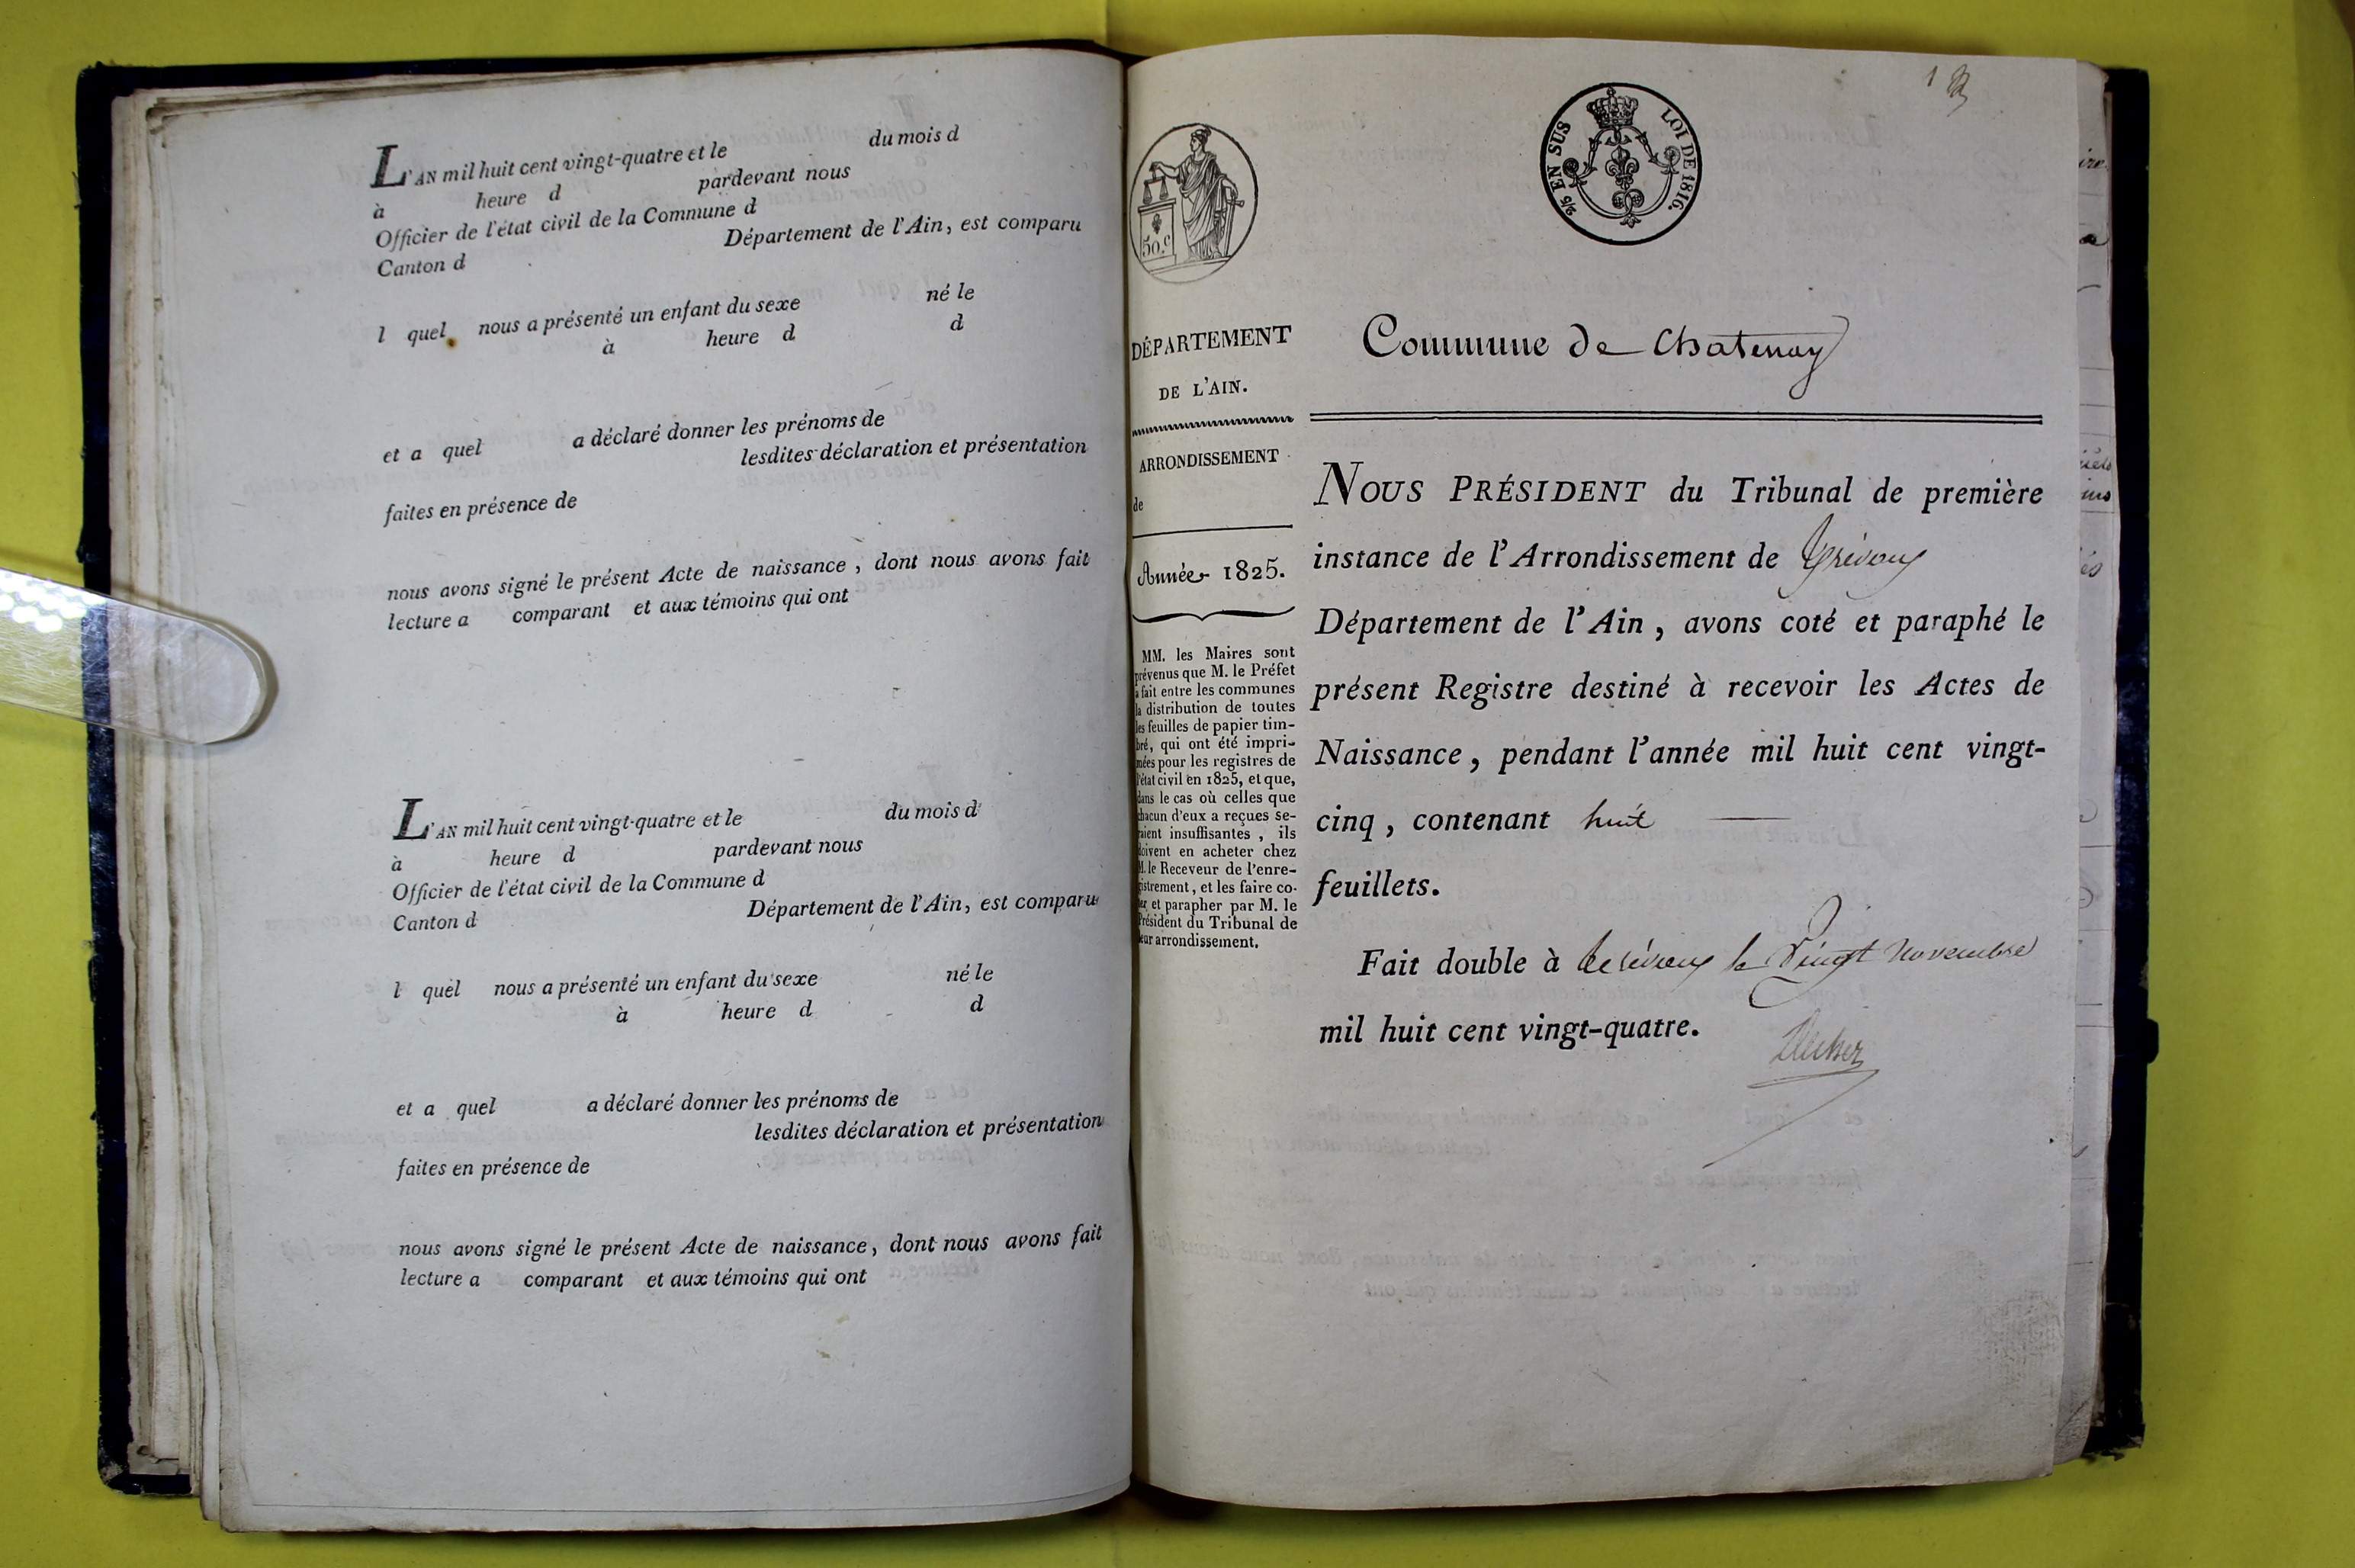 L'AN mil huit cent vingt-quatre et le du mois d
à heure d pardevant nous
Officier de l'état civil de la Commune d
Canton d Département de l'Ain, est comparu
l quel nous a présenté un enfant du sexe né le
à heure d d
et a quel a déclaré donner les prénoms de
lesdites déclaration et présentation
faites en présence de
nous avons signé le présent Acte de naissance, dont nous avons fait
lecture a comparant et aux témoins qui ont
L'AN mil huit cent vingt-quatre et le du mois d
à heure d pardevant nous
Officier de l'état civil de la Commune d
Canton d Département de l'Ain, est comparu
l quel nous a présenté un enfant du sexe né le
à heure d d
et a quel a déclaré donner les prénoms de
lesdites déclaration et présentation
faites en présence de
nous avons signé le présent Acte de naissance, dont nous avons fait
lecture a comparant et aux témoins qui ont
1
50.c
2/5 EN SUS LOI DE 1816.
DÉPARTEMENT
DE L'AIN.
ARRONDISSEMENT
de
Année 1825.
MM. les Maires sont
prévenus que M. le Préfet
a fait entre les communes
la distribution de toutes
les feuilles de papier tim-
bré, qui ont été impri-
mées pour les registres de
l'état civil en 1825, et que,
dans le cas où celles que
chacun d'eux a reçues se-
raient insuffisantes, ils
doivent en acheter chez
M. le Receveur de l'enre-
gistrement, et les faire co-
ter et parapher par M. le
Président du Tribunal de
leur arrondissement.
Commune de Chatenay
NOUS PRÉSIDENT du Tribunal de première
instance de l'Arrondissement de Trévoux
Département de l'Ain, avons coté et paraphé le
présent Registre destiné à recevoir les Actes de
Naissance, pendant l'année mil huit cent vingt-
cinq, contenant huit
feuillets.
Fait double à Trévoux le Vingt novembre
mil huit cent vingt-quatre.